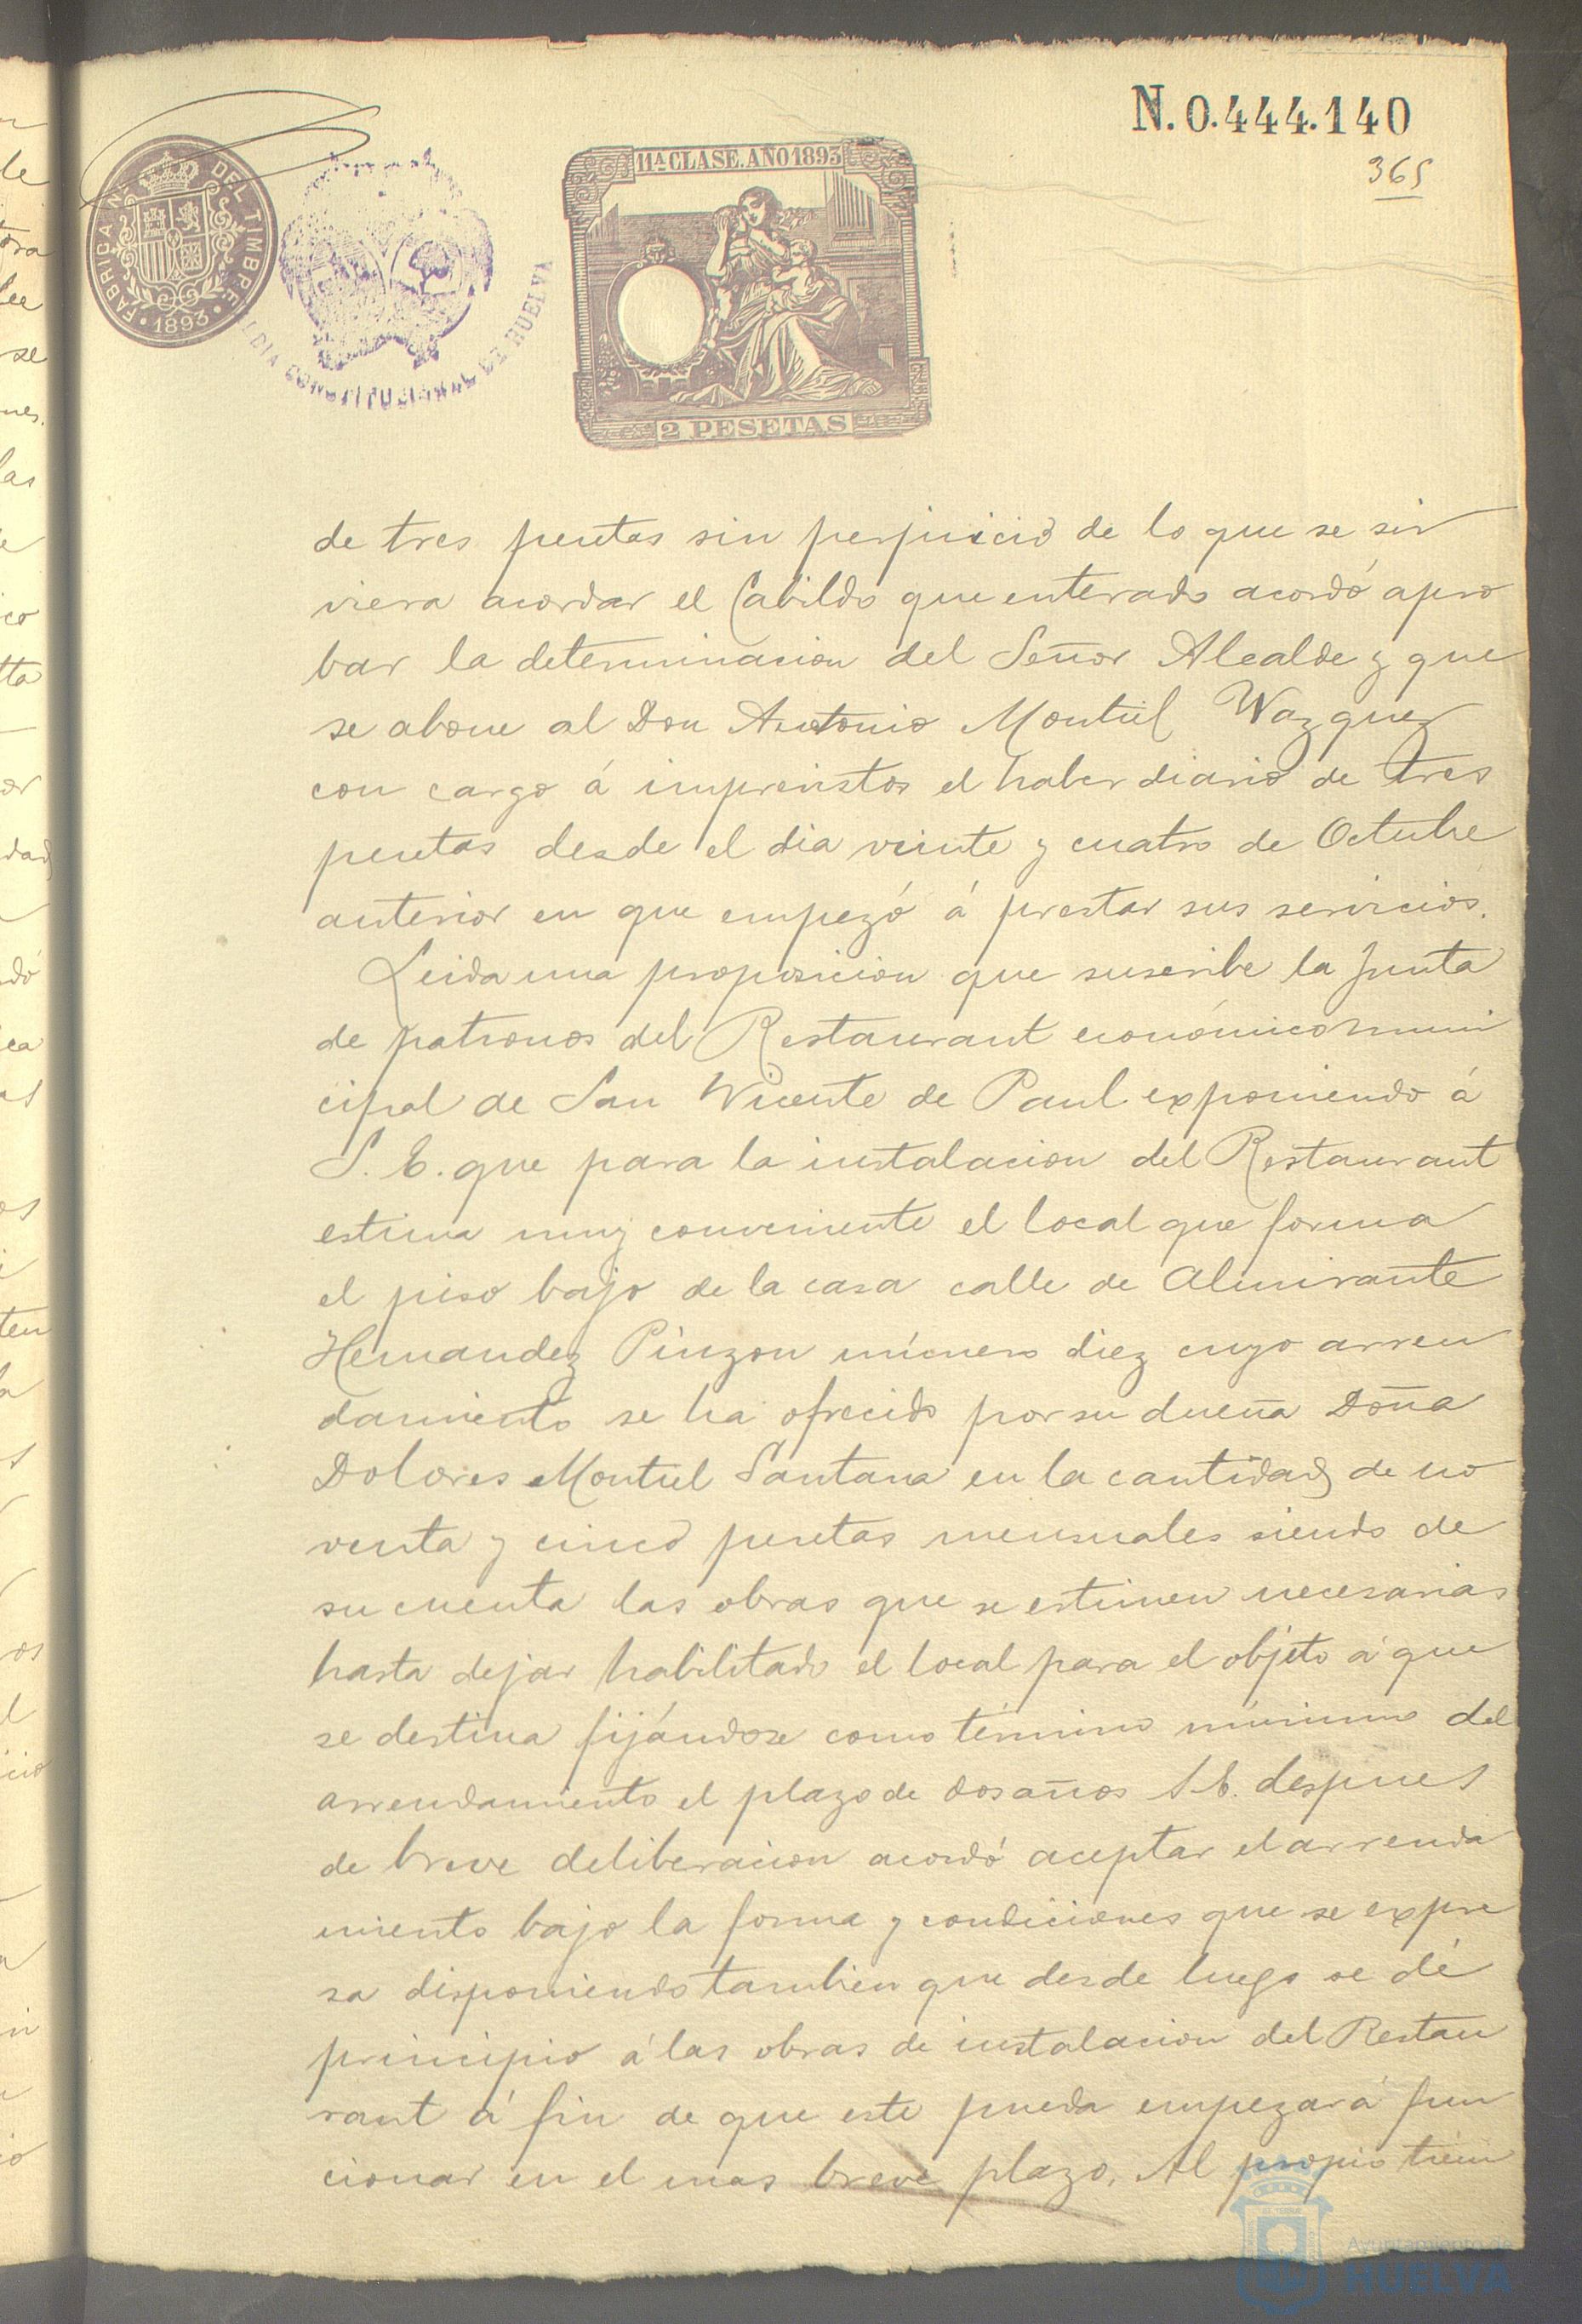 N. 0.444.140
365
FABRICA N. DEL TIMBRE
1893
DIA CONSTITUCIONAL DE HUELVA
11ª CLASE. AÑO 1893
2 PESETAS
de tres pesetas sin perjuicio de lo que se sir
viera acordar el Cabildo que enterado acordó apro
bar la determinacion del Señor Alcalde y que
se abone al Don Antonio Montiel Vazquez
con cargo á imprevistos el haber diario de tres
pesetas desde el dia veinte y cuatro de Octubre
anterior en que empezó á prestar sus servicios.
Leida una proposicion que suscribe la Junta
de patronos del Restaurant económico muni
cipal de San Vicente de Paul exponiendo á
S. E. que para la instalacion del Restaurant
estima muy conveniente el local que forma
el piso bajo de la casa calle de Almirante
Hernandez Pinzon número diez cuyo arren
damiento se ha ofrecido por su dueña Doña
Dolores Montiel Santana en la cantidad de no
venta y cinco pesetas mensuales siendo de
su cuenta las obras que se estimen necesarias
hasta dejar habilitado el local para el objeto á que
se destina fijándose como término mínimo del
arrendamiento el plazo de dos años S. E. despues
de breve deliberacion acordó aceptar el arrenda
miento bajo la forma y condiciones que se expre
sa disponiendo tambien que desde luego se dé
principio á las obras de instalacion del Restau
rant á fin de que este pueda empezar á fun
cionar en el mas breve plazo. Al propio tiem
Ayuntamiento de
HUELVA